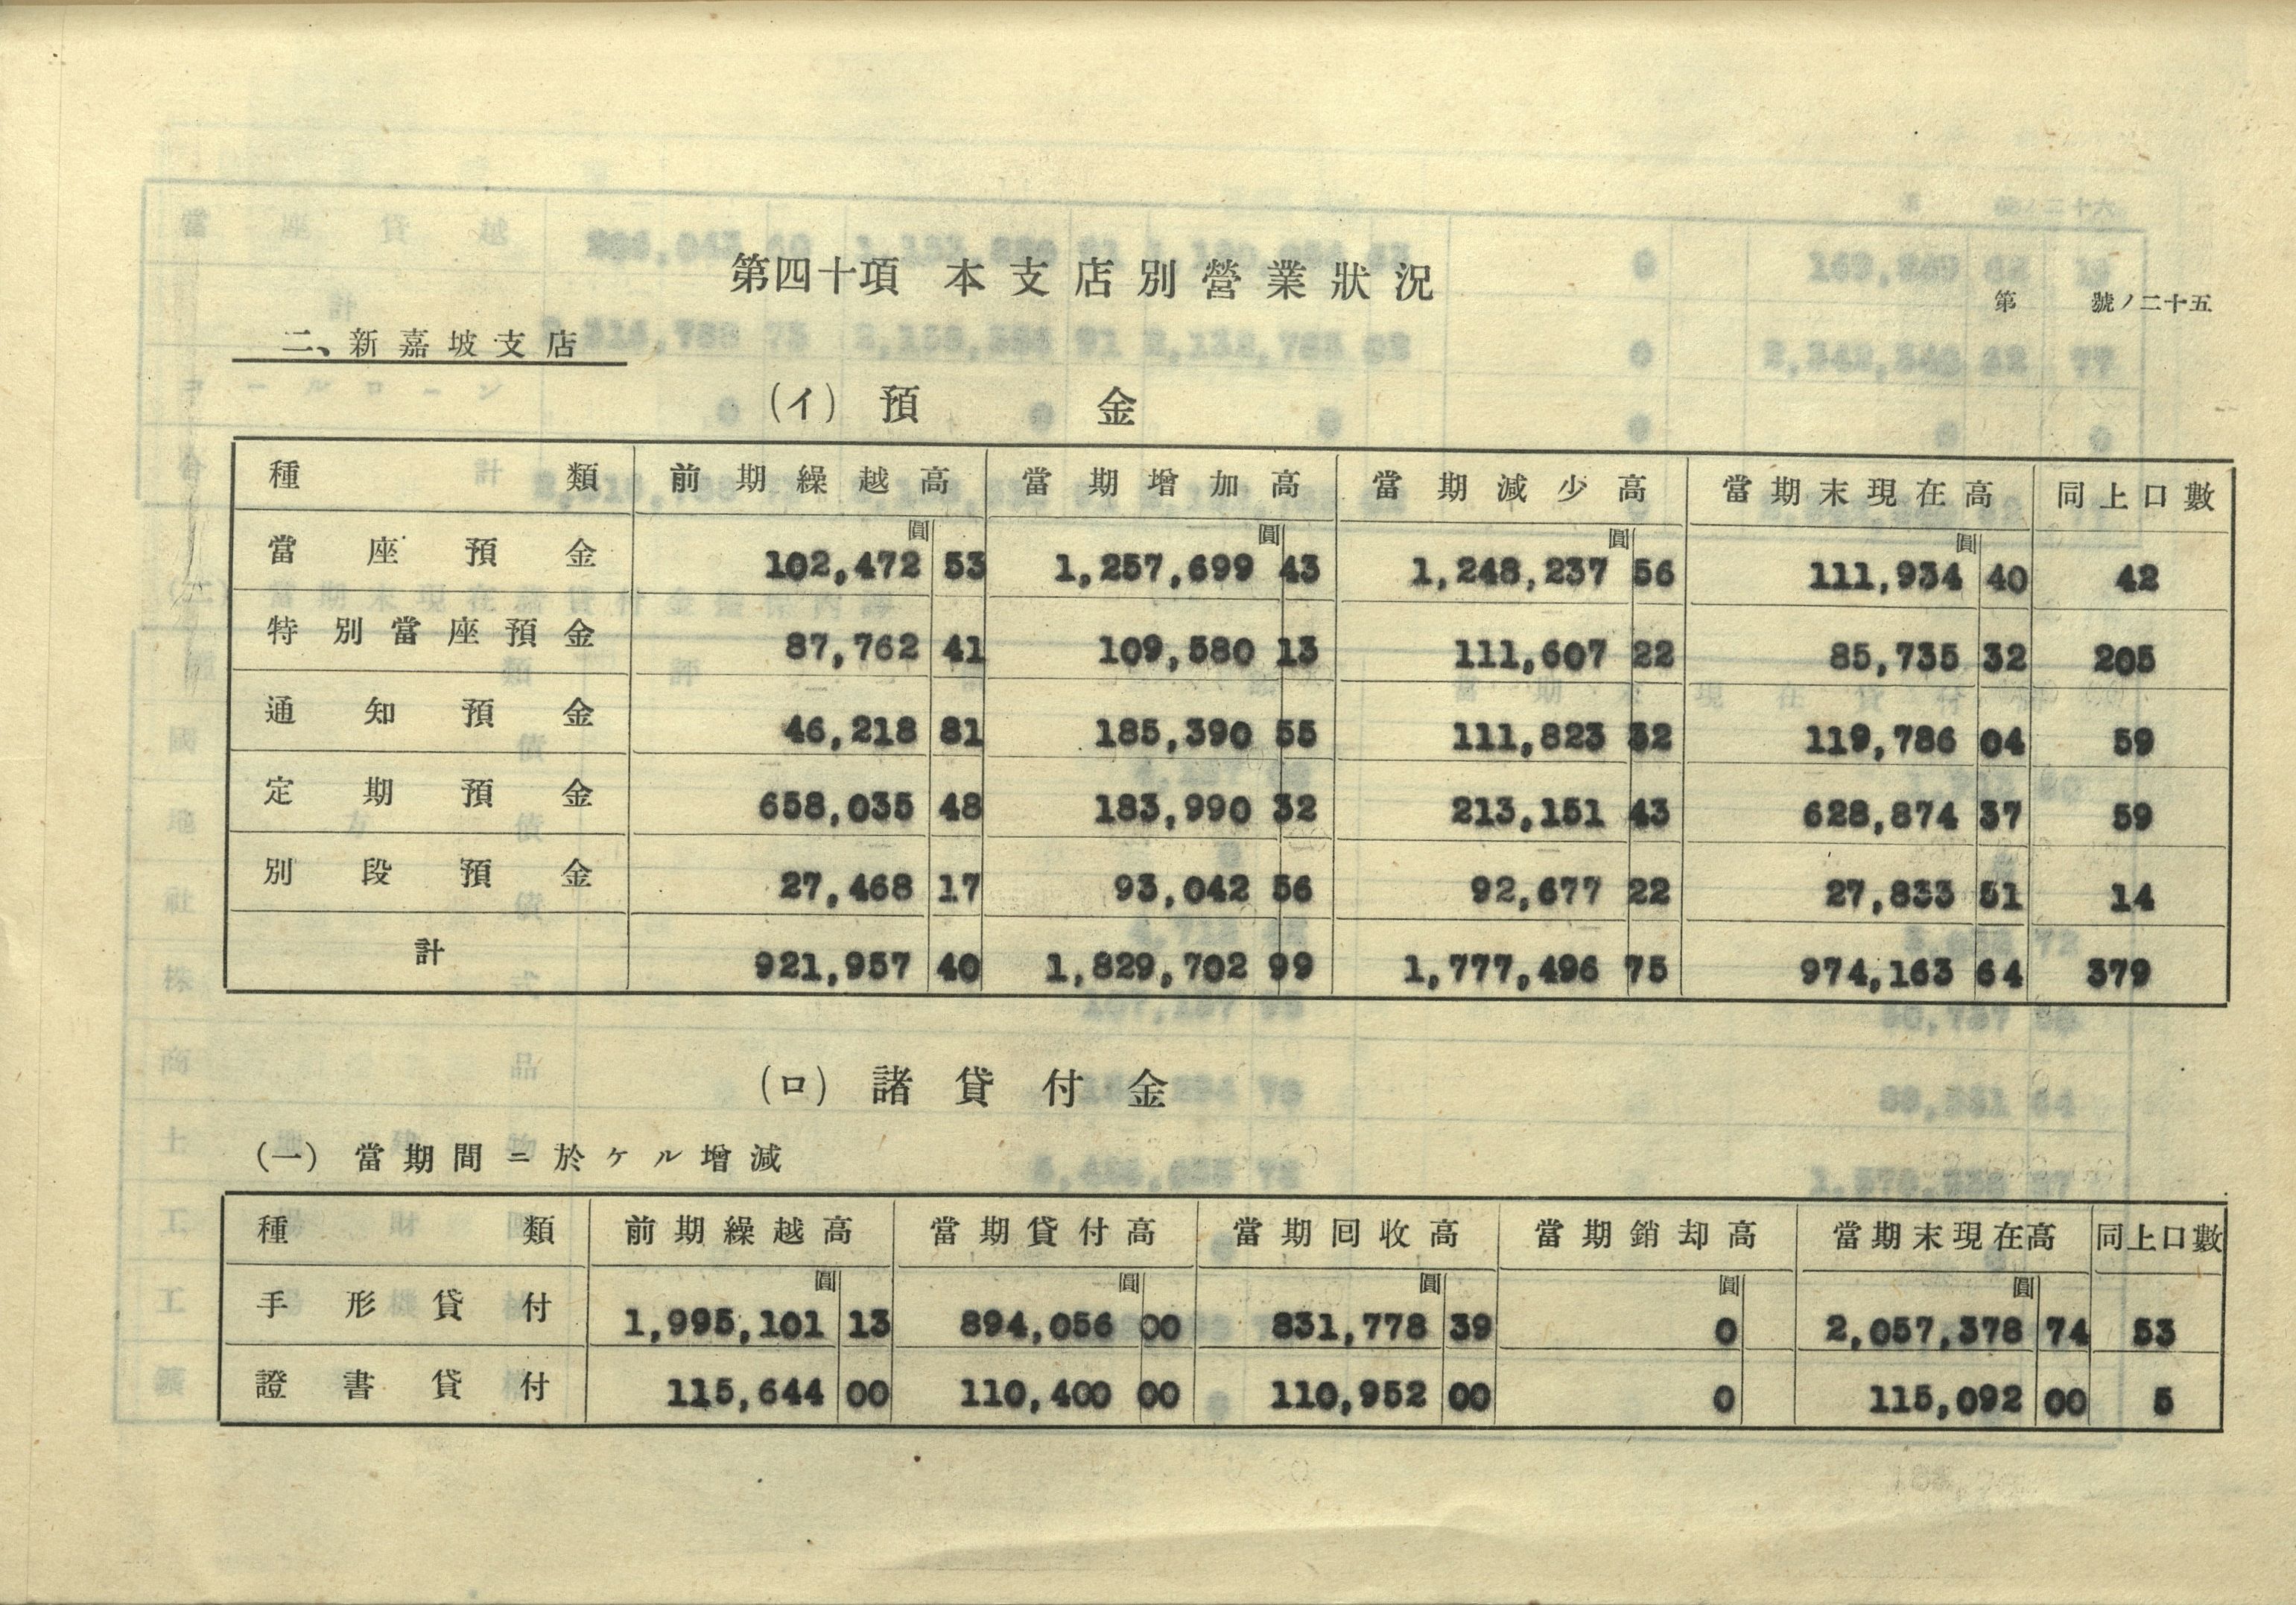 第四十項 本支店別營業狀況
第 號ノ二十五
二、新嘉坡支店
(イ) 預金
種類 前期繰越高 當期增加高 當期減少高 當期末現在高 同上口數
圓 圓 圓 圓
當座預金 102,472 53 1,257,699 43 1,248,237 56 111,934 40 42
特別當座預金 87,762 41 109,580 13 111,607 22 85,735 32 205
通知預金 46,218 81 185,390 55 111,823 32 119,786 04 59
定期預金 658,035 48 183,990 32 213,151 43 628,874 37 59
別段預金 27,468 17 93,042 56 92,677 22 27,833 51 14
計 921,957 40 1,829,702 99 1,777,496 75 974,163 64 379
(ロ) 諸貸付金
(一) 當期間ニ於ケル增減
種類 前期繰越高 當期貸付高 當期囘收高 當期銷却高 當期末現在高 同上口數
圓 圓 圓 圓 圓
手形貸付 1,995,101 13 894,056 00 831,778 39 0 2,057,378 74 53
證書貸付 115,644 00 110,400 00 110,952 00 0 115,092 00 5